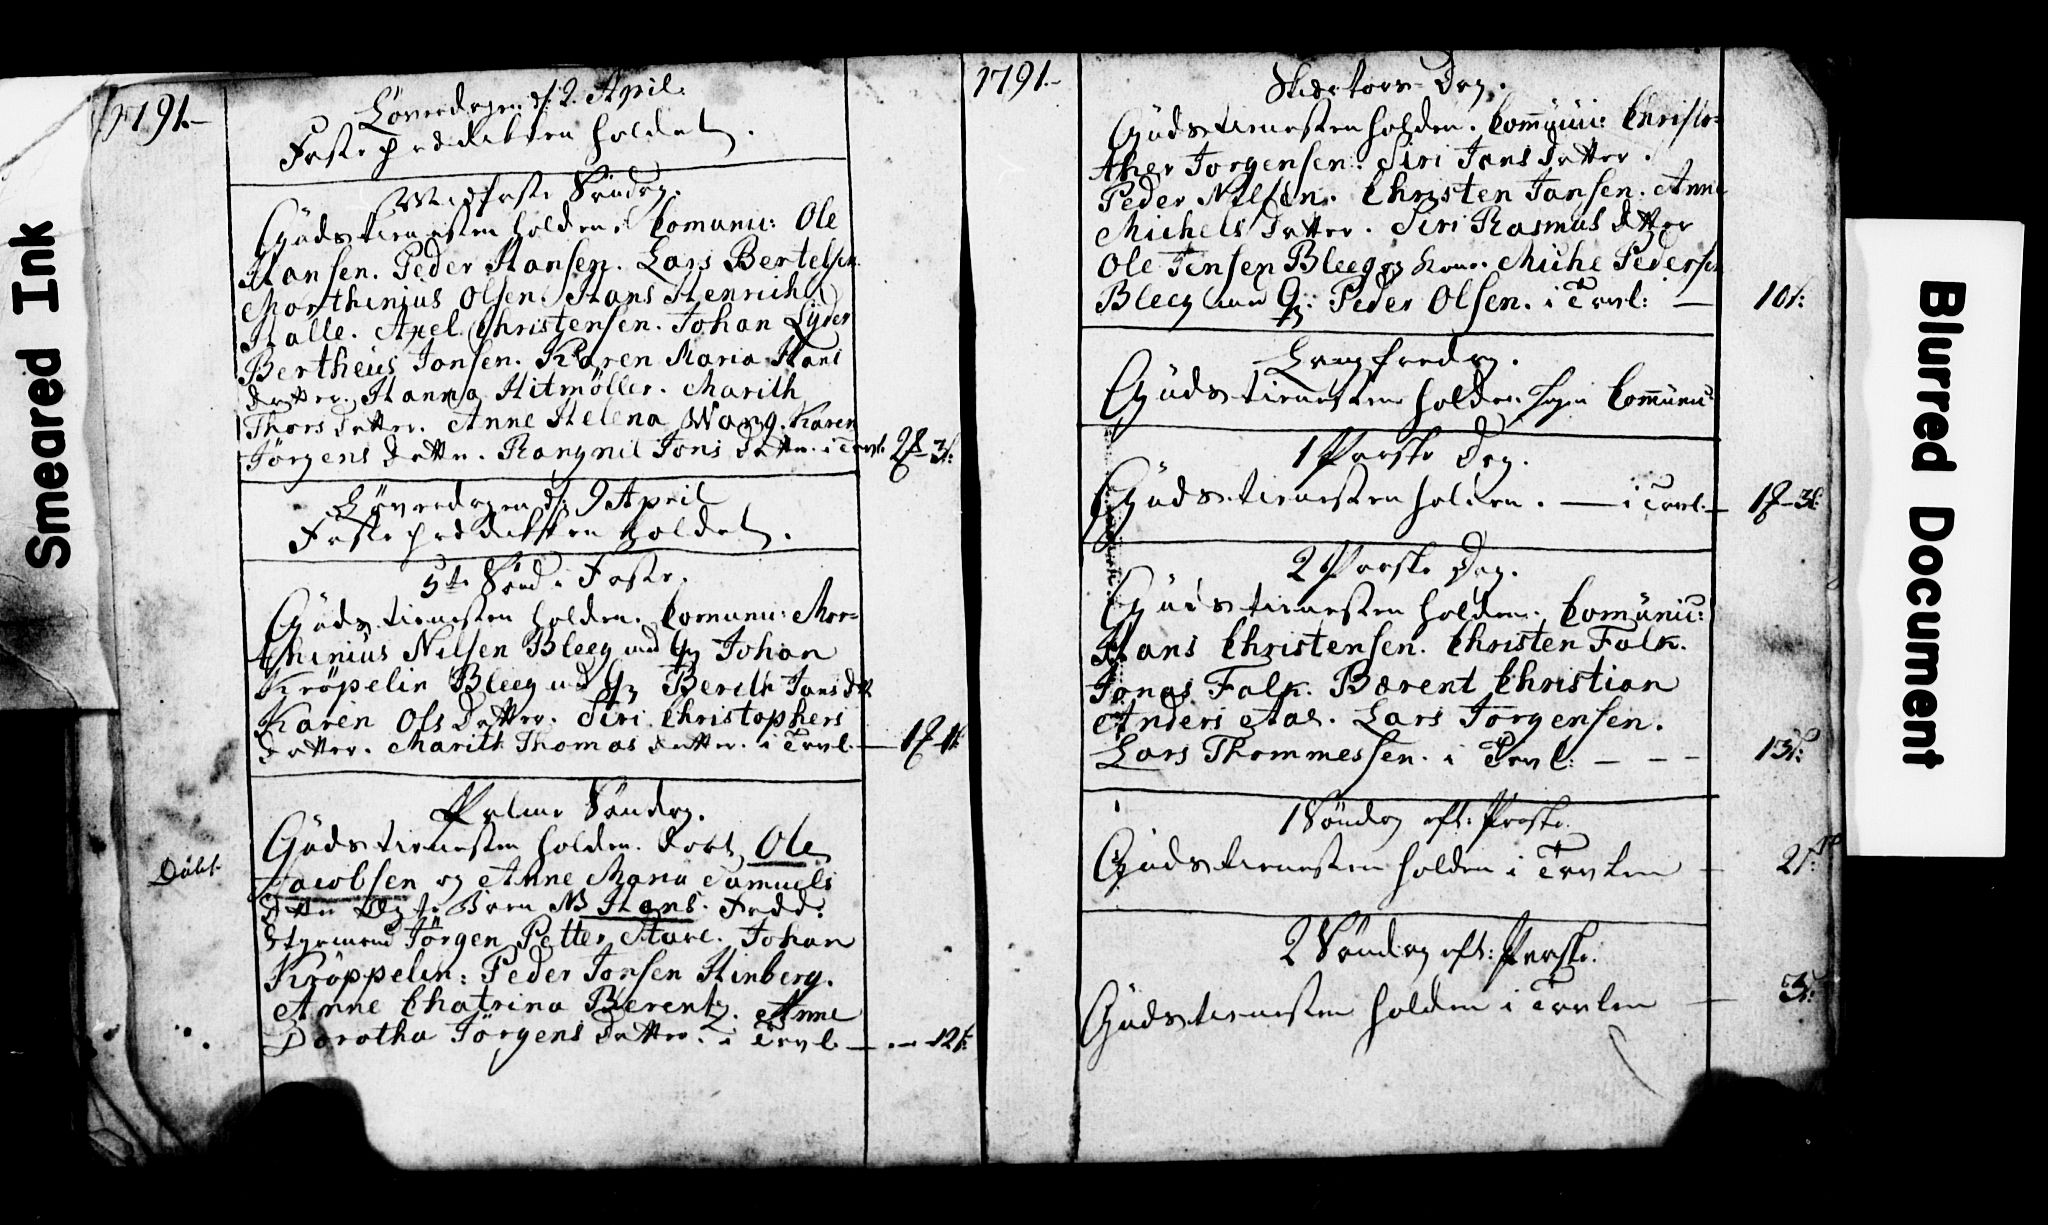 Smeared Ink
1791.
Löverdagen d: 2. April.
Fasteprædiken holdet.
Midfaste Söndag.
Gudstienesten holden. Comunic: Ole
Hansen. Peder Hansen. Lars Bertelsen
Morthinius Olsen. Hans Henrich
Halle. Axel Christensen. Johan Lyder
Bertheus Jonsen. Karen Maria Hans
datter. Hanna Hitmöller. Marith
Thors datter. Anne Helena Wang. Karen
Jörgens datter. Rangnil Jons datter. i Tavl:
Löverdagen d: 9 April
Fasteprædiken holdet.
5te Sönd. i Faste.
Gudstienesten holden. Comunic: Mor-
thinius Nilsen Bleeg med Johan
Kröpelin Bleeg med Berith Jans dtr
Karen Ols datter. Siri Christophers
datter. Marith Thomas datter. i Tavl.
Palme Söndag.
Döbt.
Gudstienesten holden. döbt Ole
Jacobsen og Anne Maria Samuels
dtter Barn N. Hans. Fadd:
Styrmand Jörgen Petter Stare. Johan
Kröppelin: Peder Jonsen Hinberg.
Anne Chatrina Berentz. Anne
Dorotha Jörgens datter. i Tavl — 12s:
1791.
Skiertors-Dag.
Gudstienesten holden. Communi: Christo-
pher Jorgensen. Siri Jens datter.
Peder Nilsen. Christen Jansen. Anne
Michels datter. Siri Rasmus dtter
Ole Jensen Bleeg og kone. Miche Pedersen
Bleeg med Peder Olsen. i Tavl: — 10s:
Langfredag.
Gudstienesten holden. Ingen Communic:
1 Paaske Dag.
Gudstienesten holden. — i Tavl.
2 Paaske Dag.
Gudstienesten holden. Comunic:
Hans Christensen. Christen Falk.
Jonas Falk. Barent Christian
Anders Aas. Lars Jorgensen.
Lars Thommessen. i Tavl: — — — 13s:
1 Söndag eft: Paaske.
Gudstienesten holden i Tavlen
2 Söndag eft: Paaske.
Gudstienesten holden i Tavlen
Blurred Document